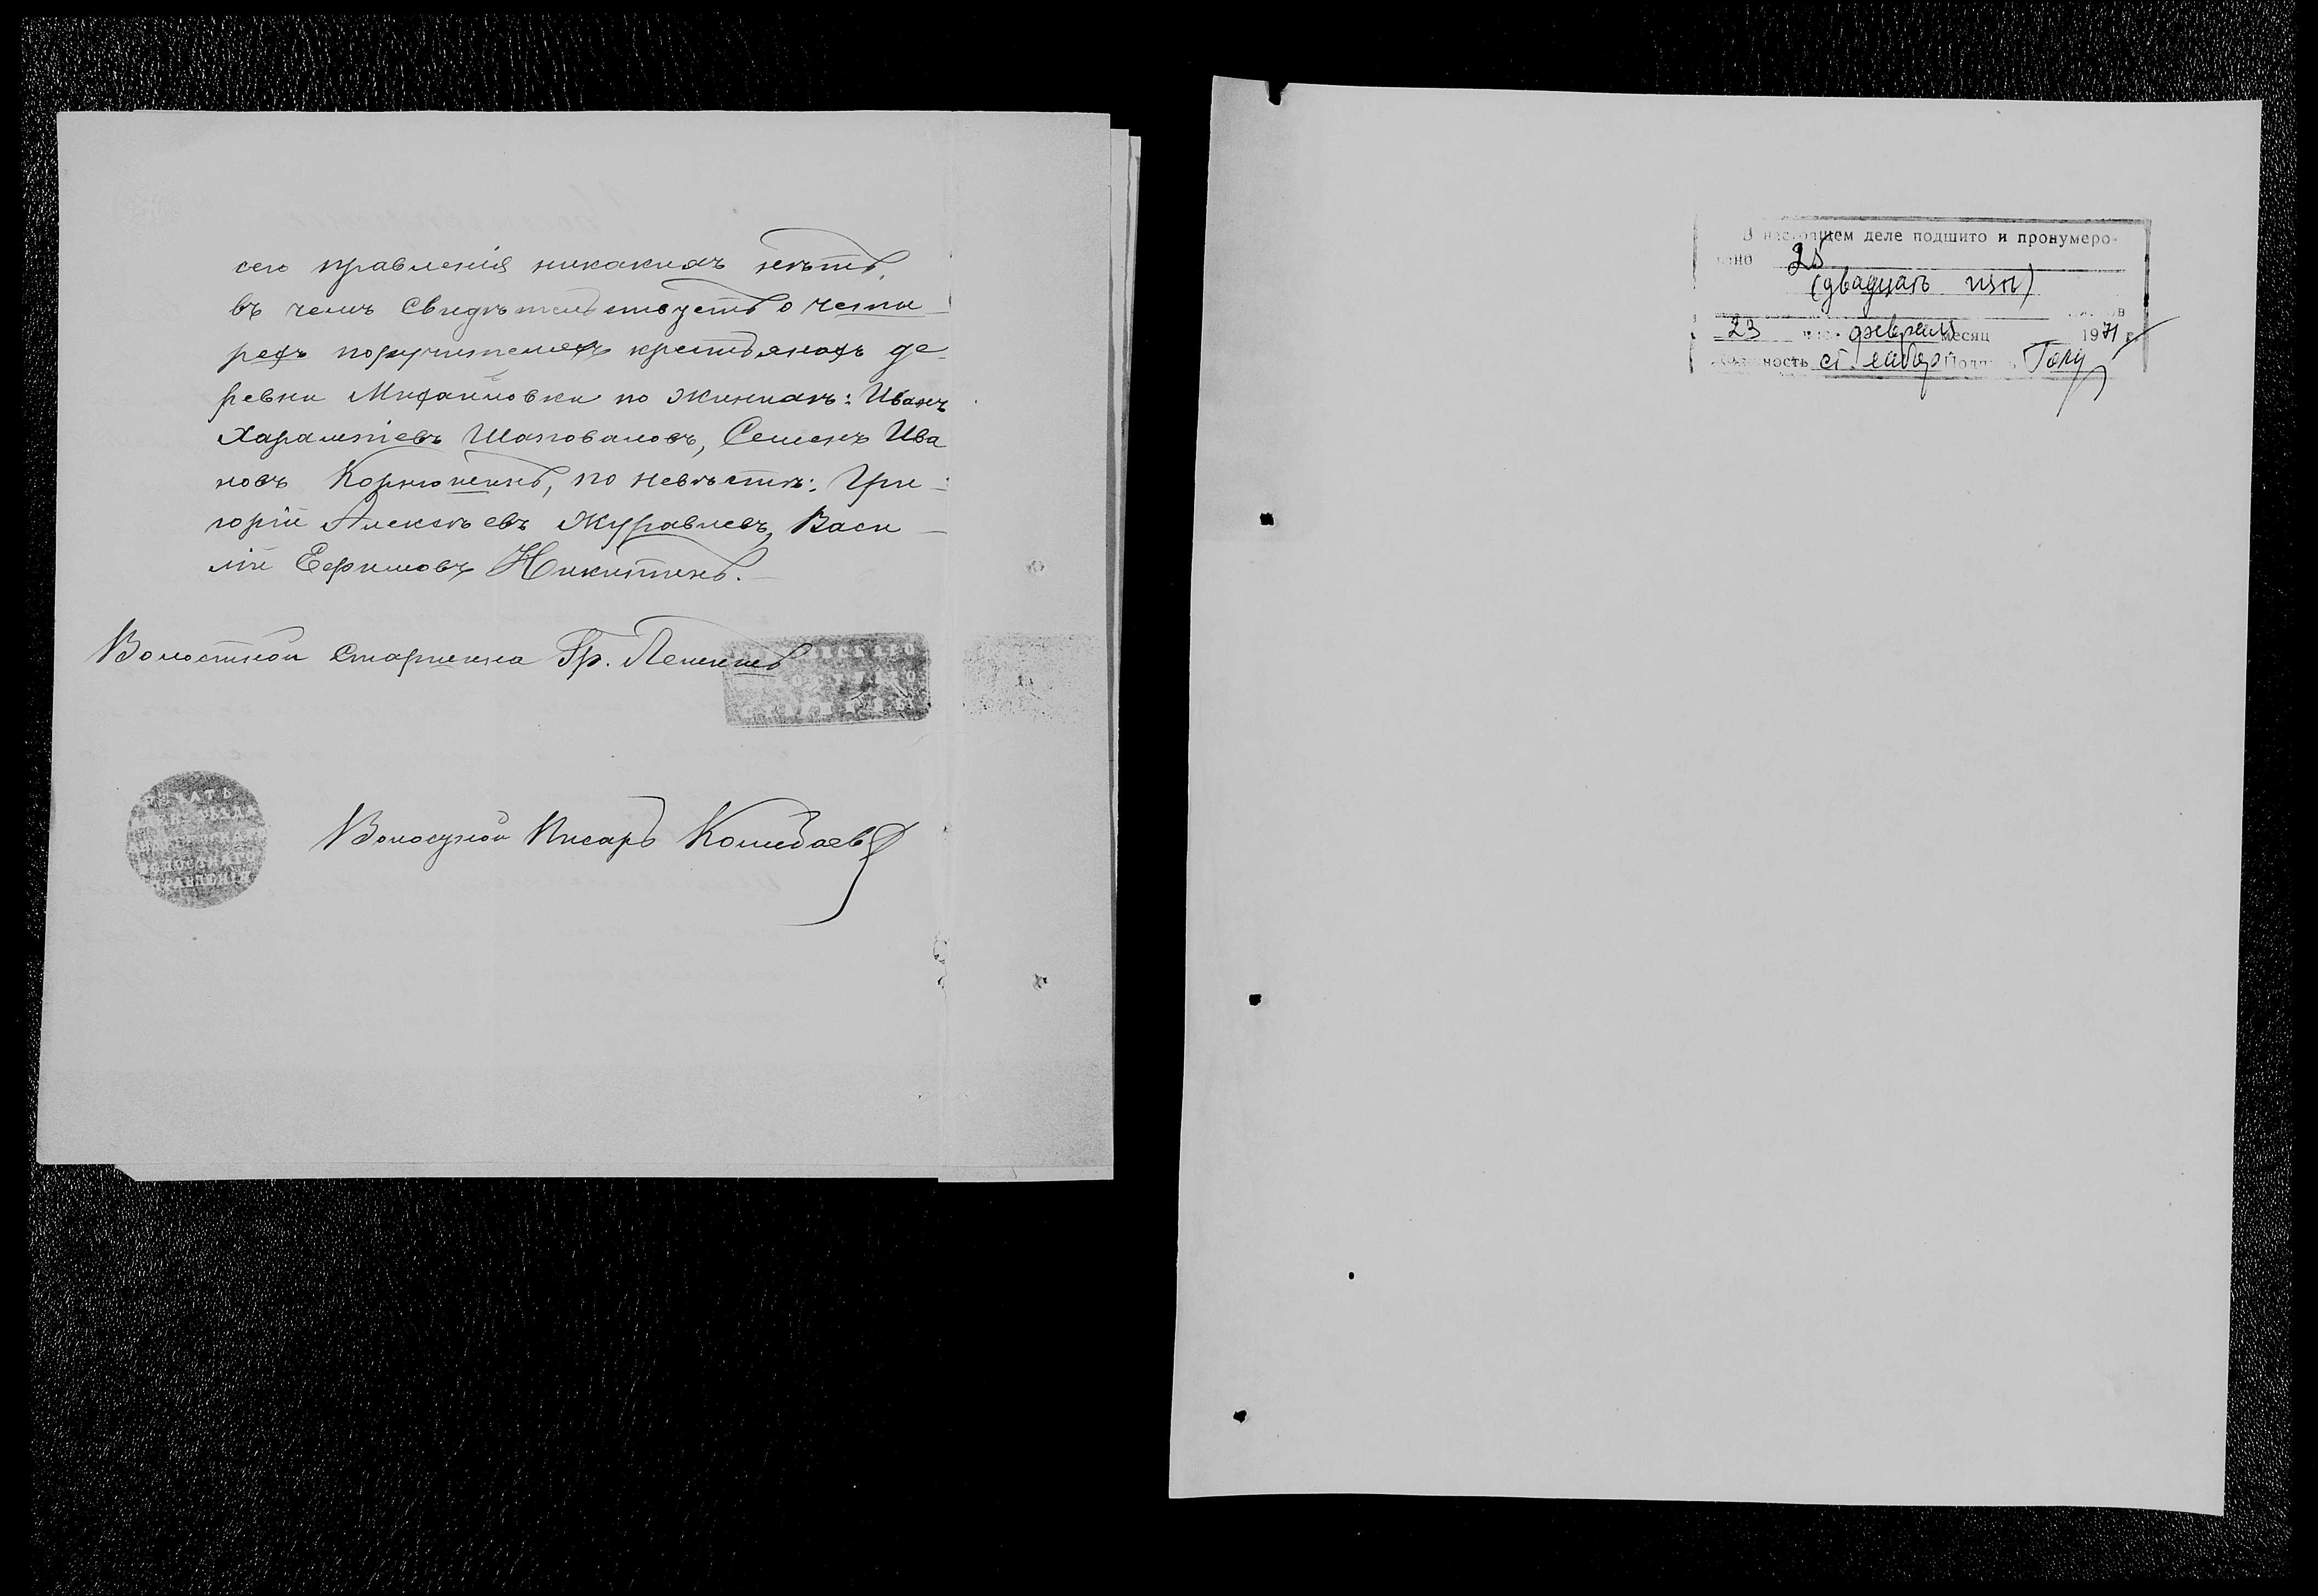 сего правленія никакихъ нѣтъ,
въ чемъ свидѣтельствуетъ о четы-
рехъ поручителяхъ крестьянахъ де-
ревни Михайловки по женихѣ: Иванъ
Харампіевъ Шаповаловъ, Семенъ Ива
новъ Корнюшенъ, по невѣстѣ: Гри-
горій Алексѣевъ Журавлевъ, Васи-
лій Ефимовъ Никитинъ.
Волостной Старшина Гр.
ПЕЧАТЬ
ВОЛОСТНАГО
ПРАВЛЕНІЯ
Волостной Писарь
В настоящем деле подшито и пронумеро-
вано 25
(двадцать пять)
23 февраля месяц 1971 г.
должность ст. лабор